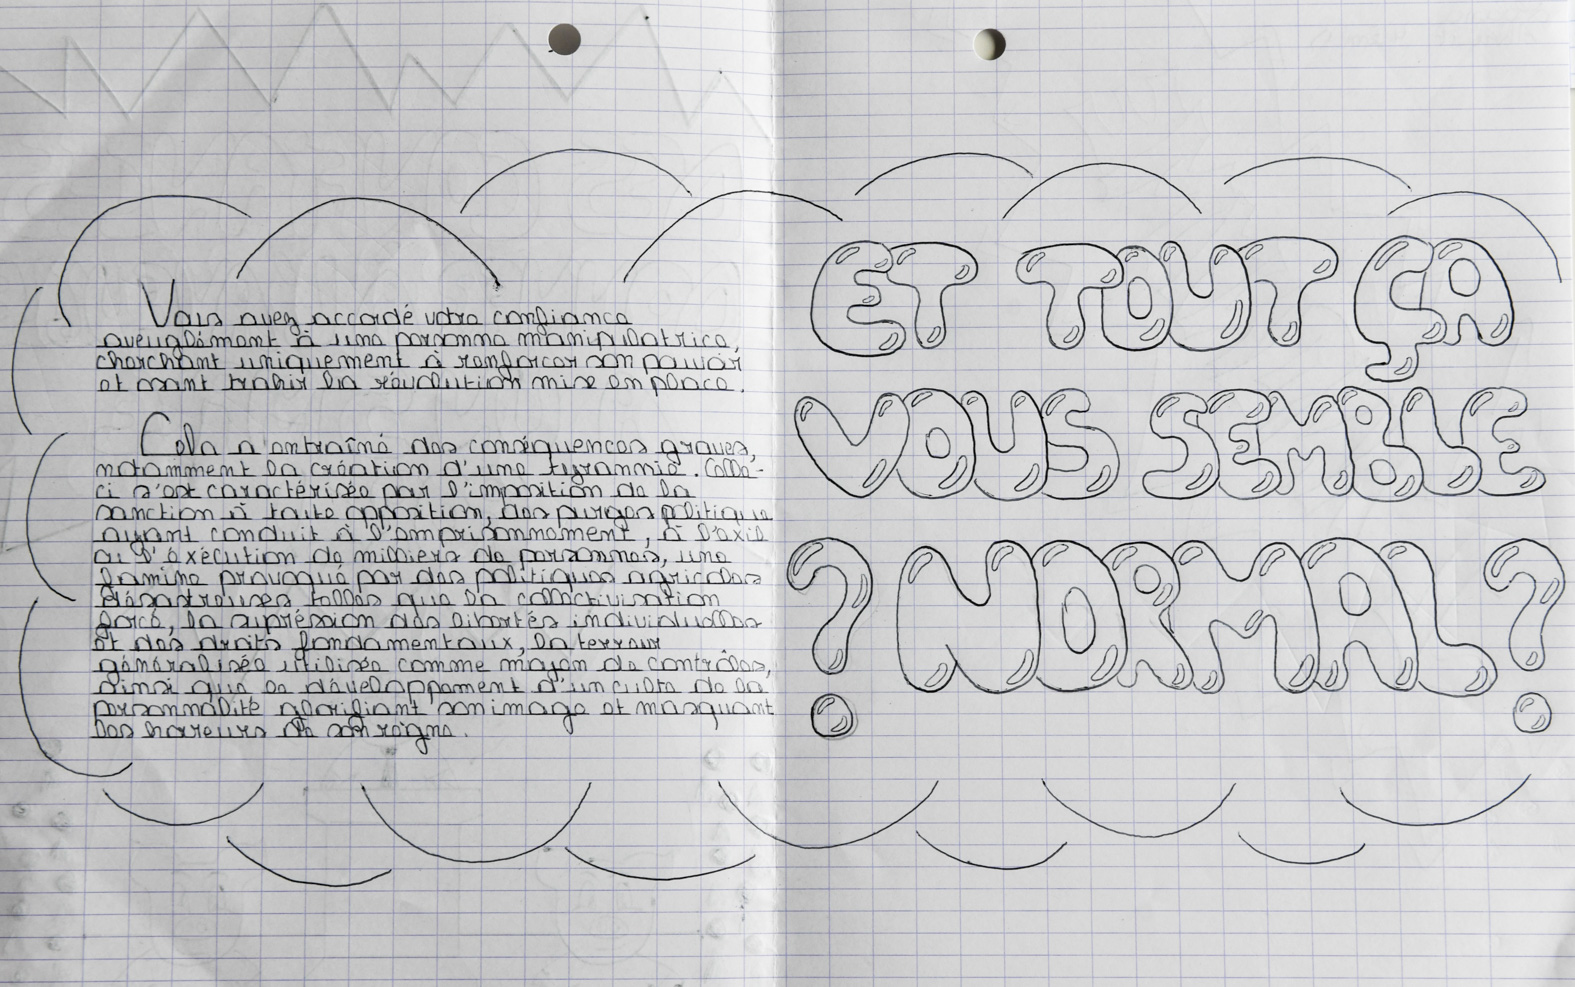 Vous avez accordé votre confiance
aveuglément à une personne manipulatrice,
cherchant uniquement à renforcer son pouvoir
et osant trahir la révolution mise en place.
Cela a entraîné des conséquences graves,
notamment la création d'une tyrannie. Celle-
ci s'est caractérisée par l'imposition de la
sanction à toute opposition, des purges politique
ayant conduit à l'emprisonnement, à l'exil
ou l'exécution de milliers de personnes, une
famine provoqué par des politiques agricoles
désastreuses telles que la collectivisation
forcé, la supréssion des libertés individuelles
et des droits fondamentaux, la terreur
généralisée utilisée comme moyen de contrôles,
ainsi que le développement d'un culte de la
personnalité glorifiant son image et masquant
les horreurs de son règne.
ET TOUT ÇA
VOUS SEMBLE
? NORMAL ?